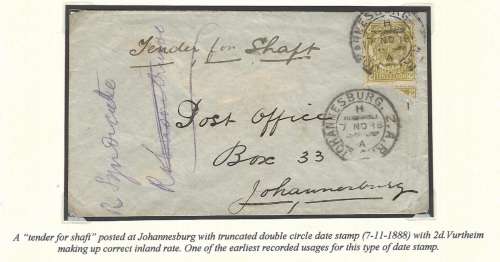 Tender for Shaft
Post Office
Box 33
Johannesburg
R Syndicate
JOHANNESBURG. Z.A.R.
H
7 NO 18
A
A "tender for shaft" posted at Johannesburg with truncated double circle date stamp (7-11-1888) with 2d. Vurtheim
making up correct inland rate. One of the earliest recorded usages for this type of date stamp.